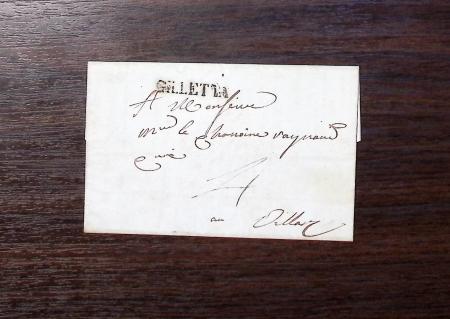 GILLETTA
A Monsieur
Mr le Chanoine Raynaud
curé
4
au Villar